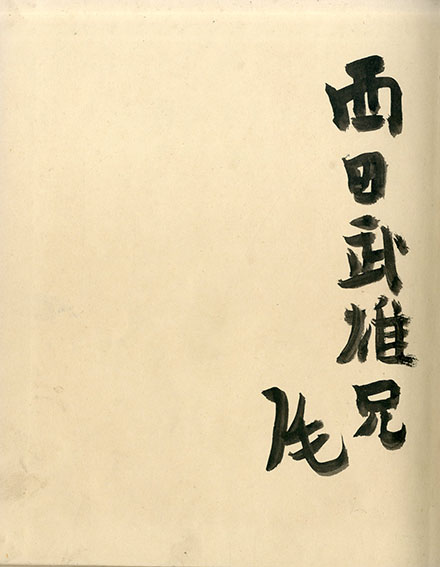 西田武雄兄